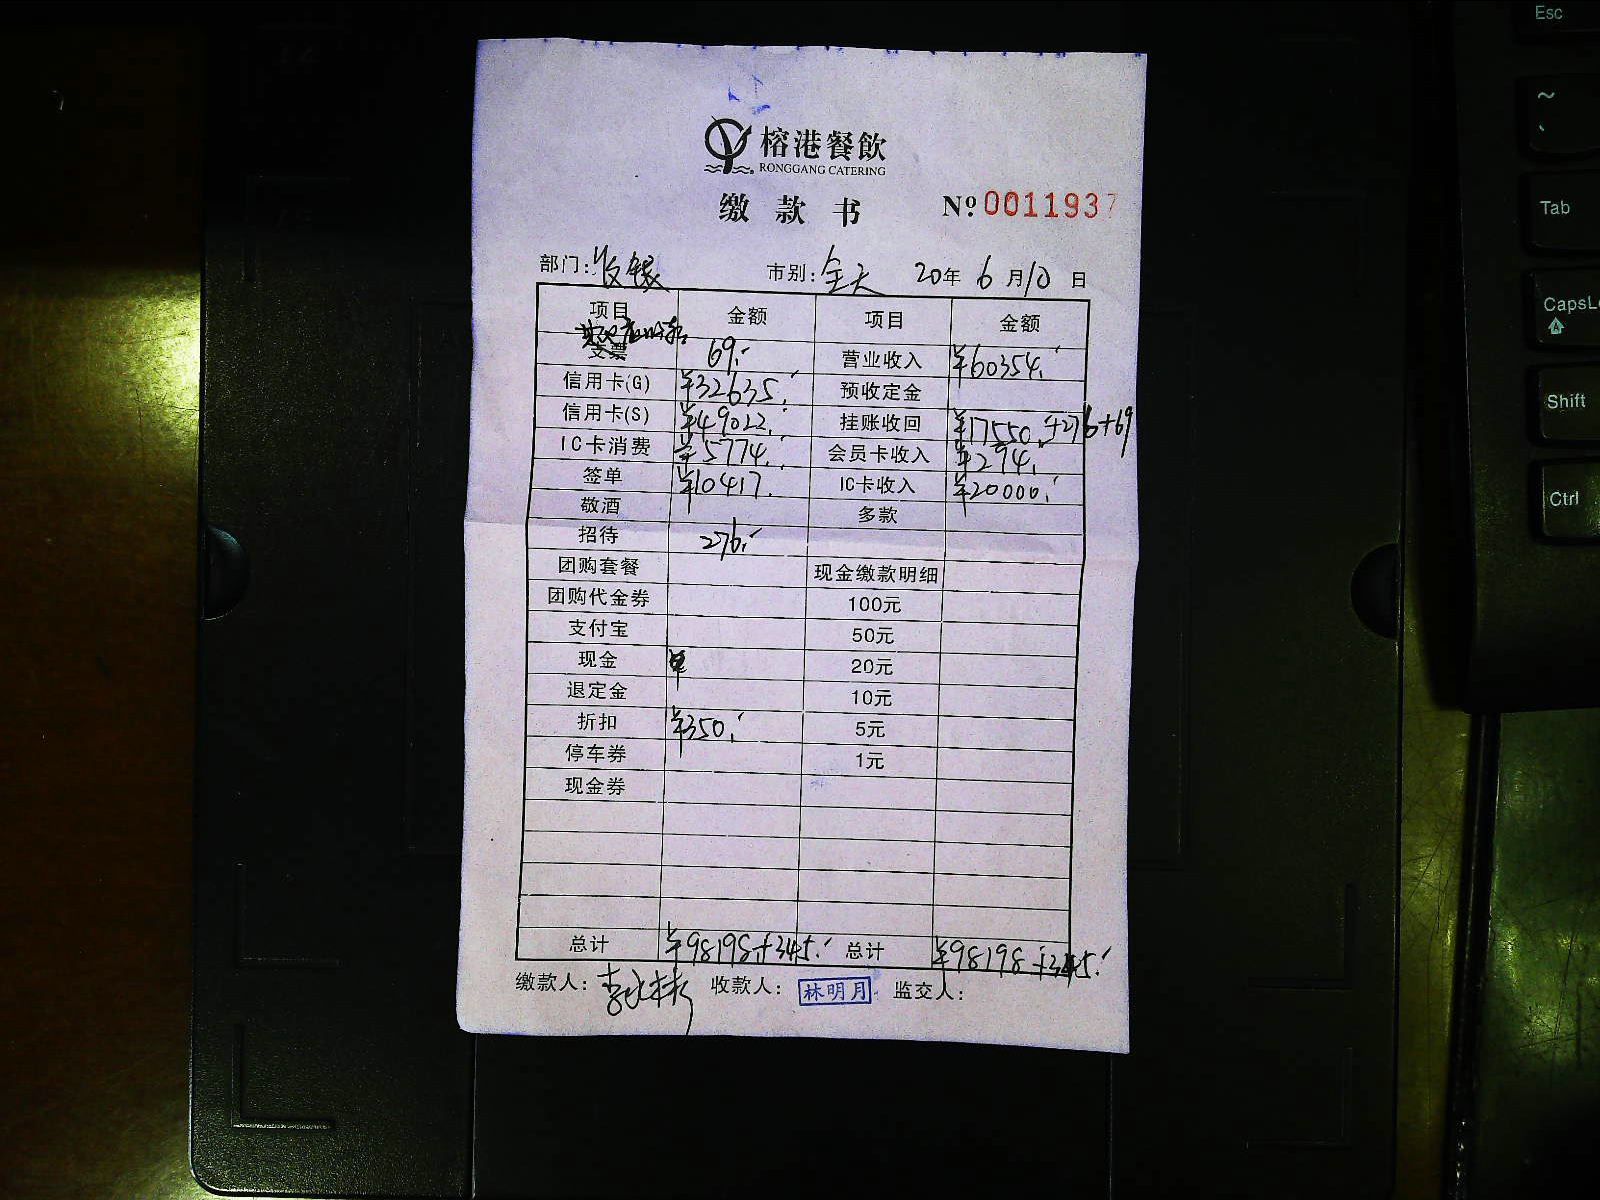 榕港餐飲
RONGGANG CATERING
缴款书 Nº 0011937
部门: 收银 市别: 全天 20年 6月10日
项目 金额 项目 金额
支票 69.- 营业收入 ¥60354.-
信用卡(G) ¥32635.- 预收定金
信用卡(S) ¥49022.- 挂账收回 ¥17550.+276+69
IC卡消费 ¥5774.- 会员卡收入 ¥294.-
签单 ¥10417. IC卡收入 ¥20000.-
敬酒 多款
招待 276.-
团购套餐 现金缴款明细
团购代金券 100元
支付宝 50元
现金 20元
退定金 10元
折扣 ¥350.- 5元
停车券 1元
现金券
总计 ¥98198.+345.- 总计 ¥98198.+345.-
缴款人: 收款人: 林明月 监交人:
Esc
~
Tab
CapsLo
Shift
Ctrl